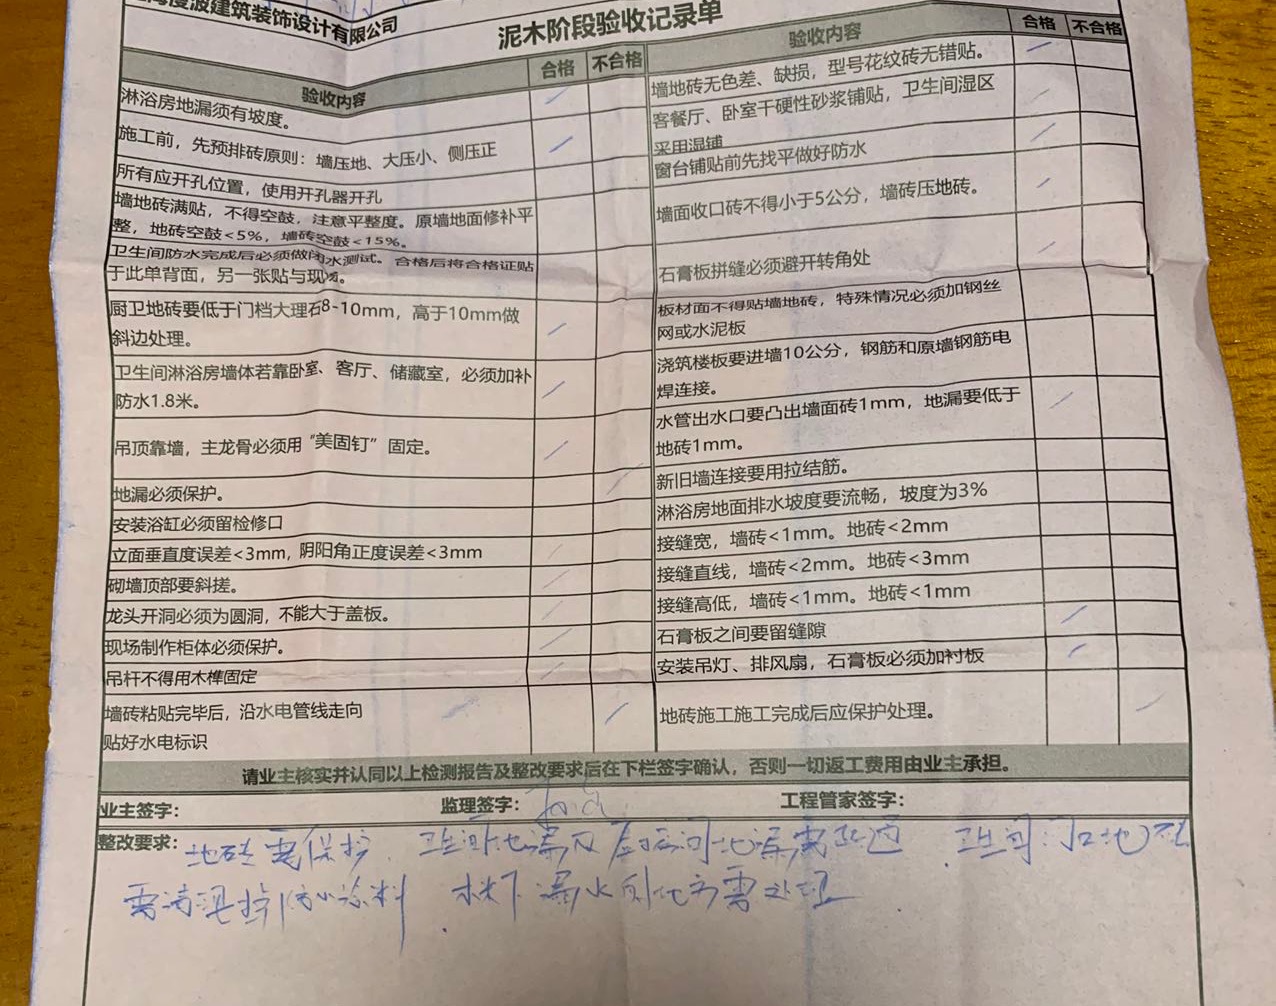 度波建筑装饰设计有限公司
泥木阶段验收记录单
验收内容 合格 不合格
淋浴房地漏须有坡度。
施工前，先预排砖原则：墙压地、大压小、侧压正
所有应开孔位置，使用开孔器开孔
墙地砖满贴，不得空鼓，注意平整度。原墙地面修补平
整，地砖空鼓<5%，墙砖空鼓<15%。
卫生间防水完成后必须做闭水测试。合格后将合格证贴
于此单背面，另一张贴与现场。
厨卫地砖要低于门档大理石8-10mm，高于10mm做
斜边处理。
卫生间淋浴房墙体若靠卧室、客厅、储藏室，必须加补
防水1.8米。
吊顶靠墙，主龙骨必须用“美固钉”固定。
地漏必须保护。
安装浴缸必须留检修口
立面垂直度误差<3mm, 阴阳角正度误差<3mm
砌墙顶部要斜搓。
龙头开洞必须为圆洞，不能大于盖板。
现场制作柜体必须保护。
吊杆不得用木榫固定
墙砖粘贴完毕后，沿水电管线走向
贴好水电标识
验收内容 合格 不合格
墙地砖无色差、缺损，型号花纹砖无错贴。
客餐厅、卧室干硬性砂浆铺贴，卫生间湿区
采用湿铺
窗台铺贴前先找平做好防水
墙面收口砖不得小于5公分，墙砖压地砖。
石膏板拼缝必须避开转角处
板材面不得贴墙地砖，特殊情况必须加钢丝
网或水泥板
浇筑楼板要进墙10公分，钢筋和原墙钢筋电
焊连接。
水管出水口要凸出墙面砖1mm，地漏要低于
地砖1mm。
新旧墙连接要用拉结筋。
淋浴房地面排水坡度要流畅，坡度为3%
接缝宽，墙砖<1mm。地砖<2mm
接缝直线，墙砖<2mm。地砖<3mm
接缝高低，墙砖<1mm。地砖<1mm
石膏板之间要留缝隙
安装吊灯、排风扇，石膏板必须加衬板
地砖施工施工完成后应保护处理。
请业主核实并认同以上检测报告及整改要求后在下栏签字确认，否则一切返工费用由业主承担。
业主签字： 监理签字： 工程管家签字：
整改要求：地砖需保护 卫生间地漏及 地漏需 卫生间门口地
需清理掉防水涂料 漏水 需处理